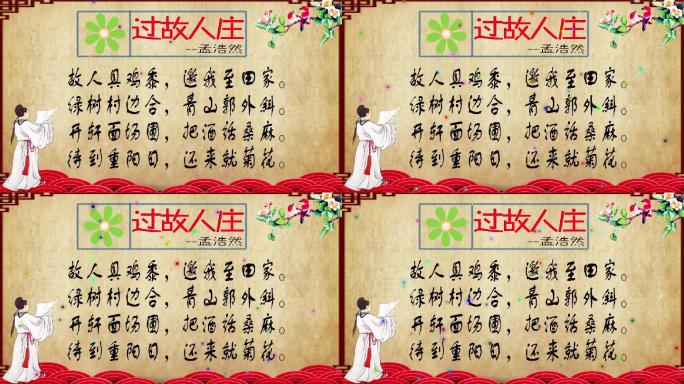 过故人庄
--孟浩然
故人具鸡黍，邀我至田家。
绿树村边合，青山郭外斜。
开轩面场圃，把酒话桑麻。
待到重阳日，还来就菊花。
过故人庄
--孟浩然
故人具鸡黍，邀我至田家。
绿树村边合，青山郭外斜。
开轩面场圃，把酒话桑麻。
待到重阳日，还来就菊花。
过故人庄
--孟浩然
故人具鸡黍，邀我至田家。
绿树村边合，青山郭外斜。
开轩面场圃，把酒话桑麻。
待到重阳日，还来就菊花。
过故人庄
--孟浩然
故人具鸡黍，邀我至田家。
绿树村边合，青山郭外斜。
开轩面场圃，把酒话桑麻。
待到重阳日，还来就菊花。